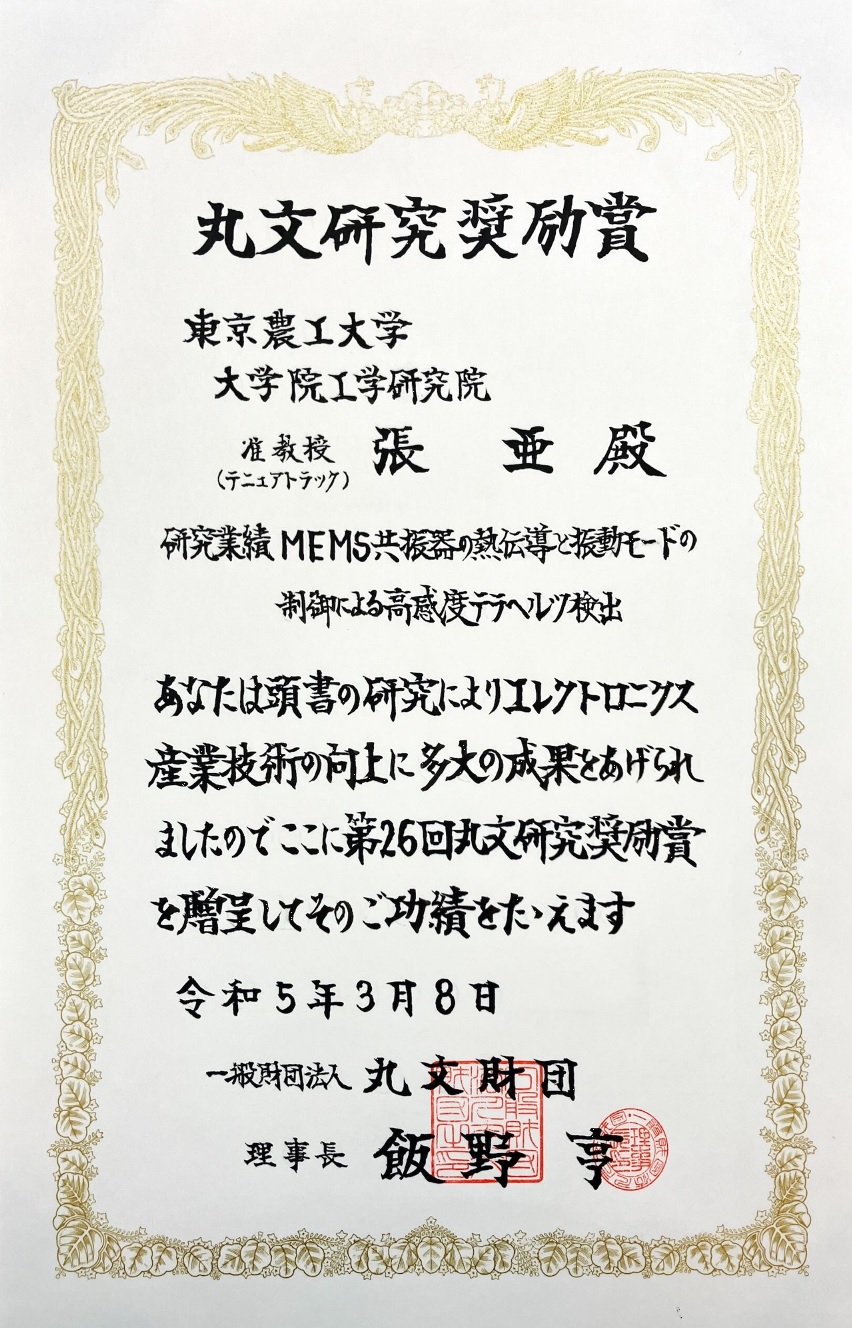 丸文研究奨励賞
東京農工大学
大学院工学研究院
准教授 張 亜 殿
(テニュアトラック)
研究業績 MEMS共振器の熱伝導と振動モードの
制御による高感度テラヘルツ検出
あなたは頭書の研究によりエレクトロニクス
産業技術の向上に多大の成果をあげられ
ましたのでここに第26回丸文研究奨励賞
を贈呈してそのご功績をたゝえます
令和5年3月8日
一般財団法人 丸文財団
理事長 飯野 亨